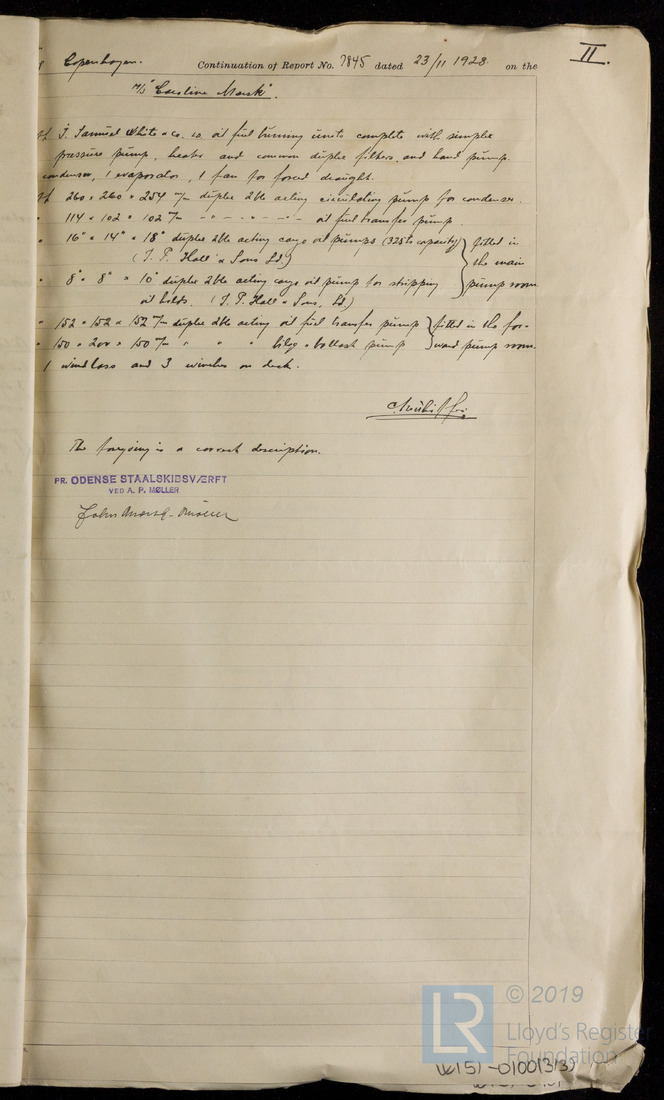 Copenhagen. Continuation of Report No. 7845 dated 23/11 1928 on the
II.
M/S "Caroline Mærsk".
J. Samuel White & Co. oil fuel burning units complete with simplex
pressure pump, heater and common duplex filters, and hand pump.
condenser, 1 evaporator, 1 fan for forced draught.
260 × 260 × 254 m/m duplex dble acting circulating pump for condenser.
" 114 × 102 × 102 m/m " - " - " - oil fuel transfer pump
" 16" × 14" × 18" duplex dble acting cargo oil pumps (325 ts capacity) fitted in
(J. P. Hall & Sons Ld.) the main
" 8" × 8" × 10" duplex dble acting cargo oil pump for stripping pump room
oil holds. (J. P. Hall & Sons, Ld.)
" 152 × 152 × 152 m/m duplex dble acting oil fuel transfer pump fitted in the for-
" 150 × 200 × 150 m/m " " " bilge & ballast pump ward pump room.
1 windlass and 3 winches on deck.
The foregoing is a correct description.
PR. ODENSE STAALSKIBSVÆRFT
VED A. P. MØLLER
© 2019
LR
Lloyd's Register
Foundation
W151-0100(3/3)